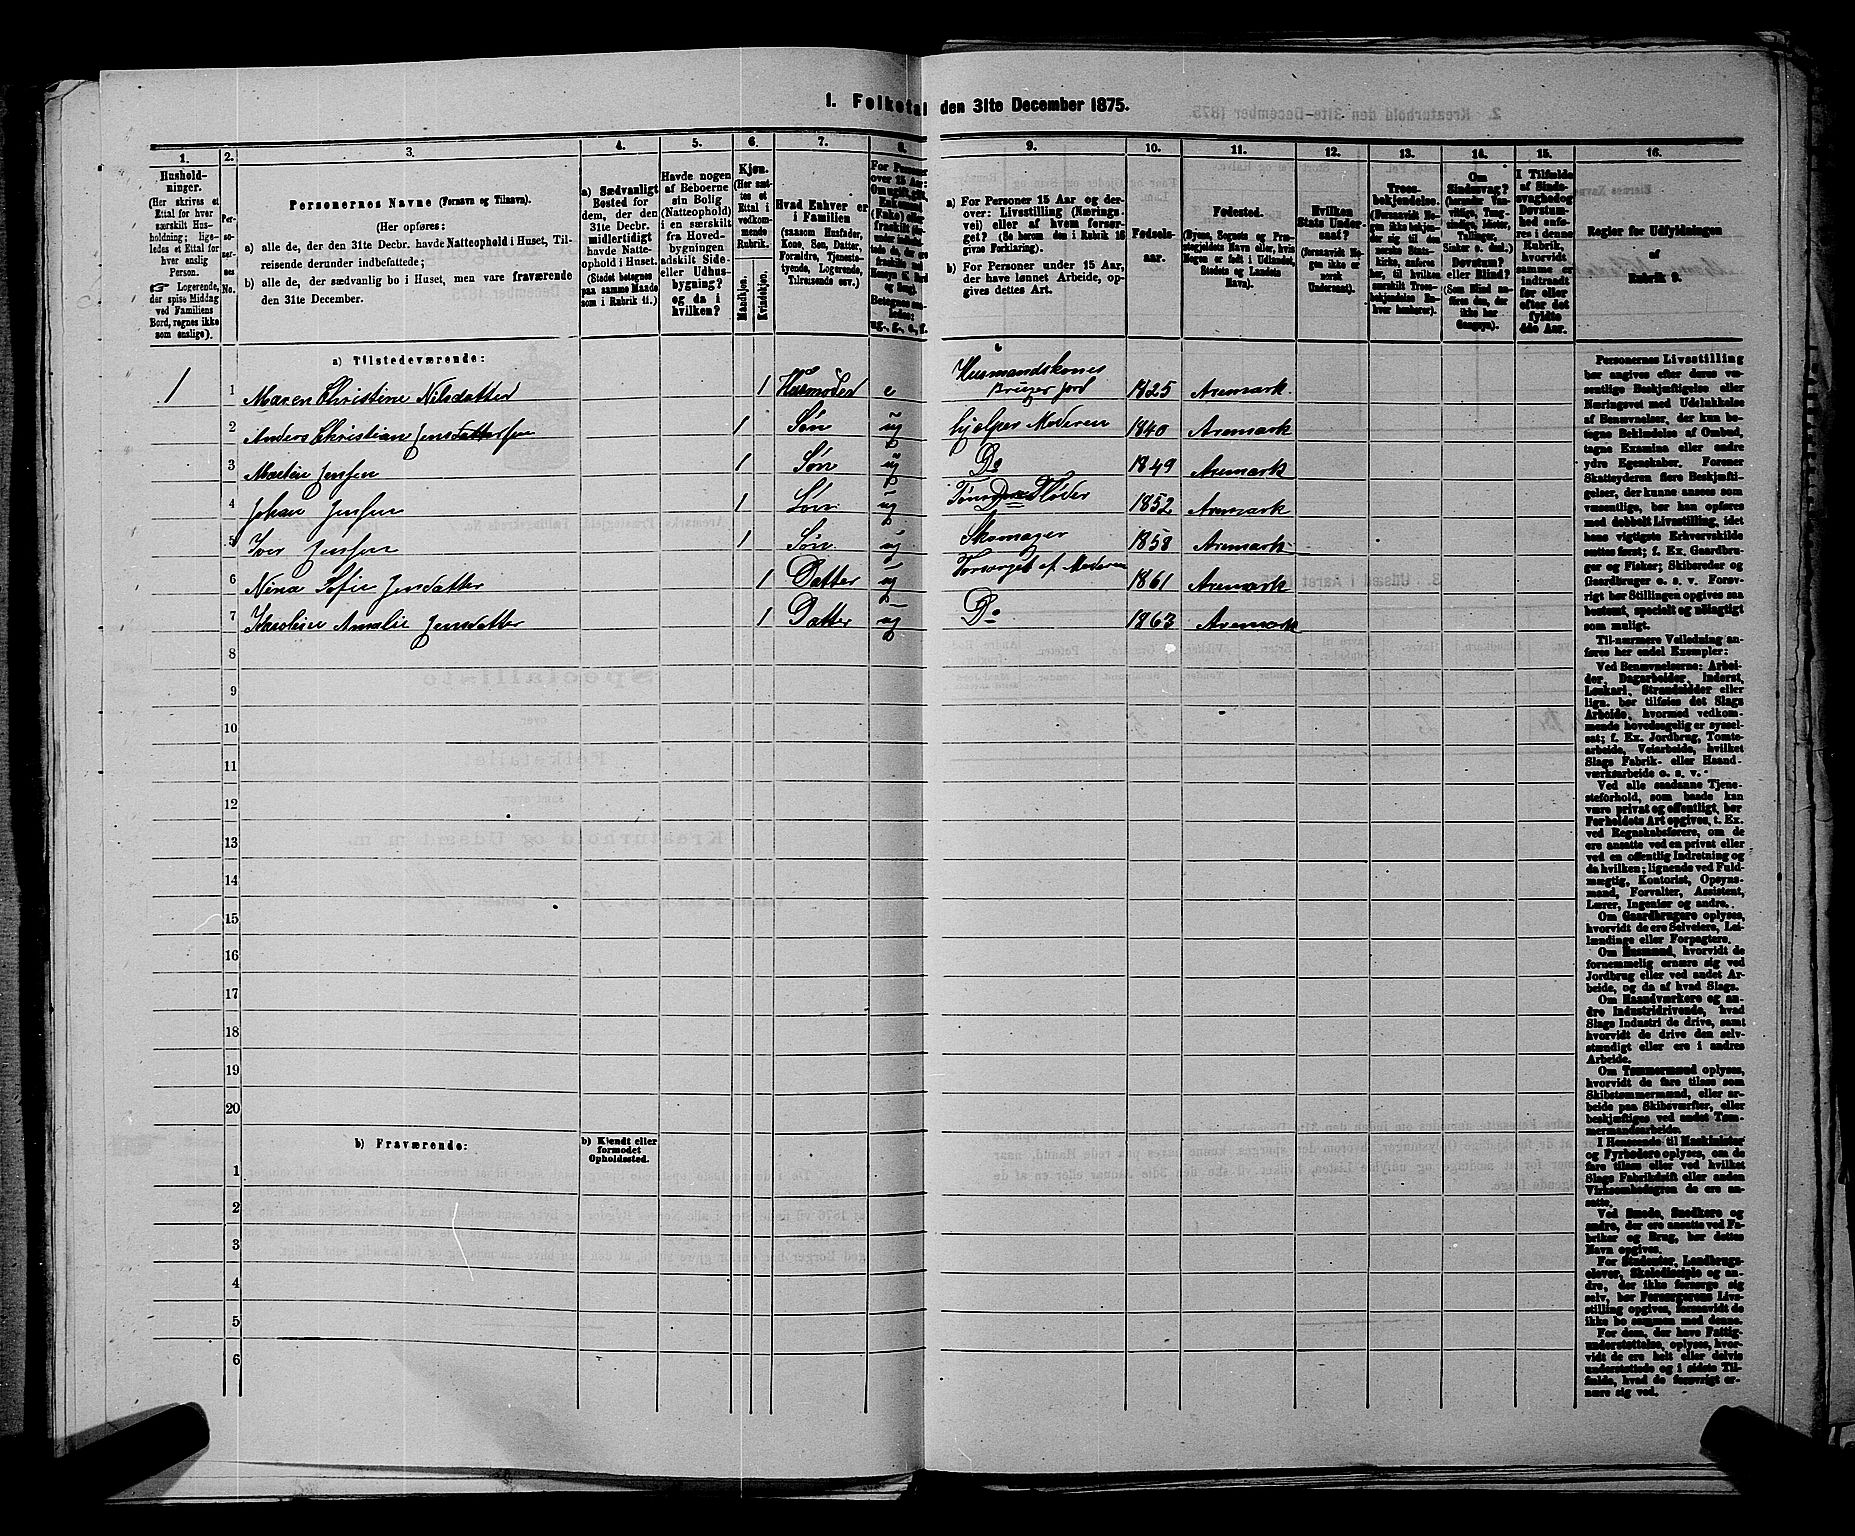 1. Folketal den 31te December 1875.
1. 2. 3. 4. 5. 6. 7. 8. 9. 10. 11. 12. 13. 14. 15. 16.
Hushold-
ninger.
(Her skrives et
Ettal for hver
særskilt Hus-
holdning; lige-
ledes et Ettal for
hver enslig
Person.
Logerende,
der spise Middag
ved Familiens
Bord, regnes ikke
som enslige).
Per-
so-
ner-
nes
No.
Personernes Navne (Fornavn og Tilnavn).
(Her opføres:
a) alle de, der den 31te Decbr. havde Natteophold i Huset, Til-
reisende derunder indbefattede;
b) alle de, der sædvanlig bo i Huset, men vare fraværende
den 31te December.
a) Sædvanligt
Bosted for
dem, der den
31te Decbr.
midlertidigt
havde Natte-
ophold i Huset.
(Stedet betegnes
paa samme Maade
som i Rubrik 11.)
Havde nogen
af Beboerne
sin Bolig
(Natteophold)
i en særskilt
fra Hoved-
bygningen
adskilt Side-
eller Udhus-
bygning?
og da i
hvilken?
Kjøn.
(Her sæt-
tes et
Ettal i
vedkom-
mende
Rubrik.
Mandkjøn.
Kvindekjøn.
Hvad Enhver er
i Familien
(saasom Husfader,
Kone, Søn, Datter,
Forældre, Tjeneste-
tyende, Logerende,
Tilreisende osv.)
a) For Personer 15 Aar og der-
over: Livsstilling (Nærings-
vei) eller af hvem forsør-
get? (Se herom den i Rubrik 16
givne Forklaring).
b) For Personer under 15 Aar,
der have lønnet Arbeide, op-
gives dettes Art.
Fødsels-
aar.
Fødested.
(Byens, Sognets og Præ-
stegjeldets Navn eller, hvis
Nogen er født i Udlandet,
Stedets og Landets
Navn).
Hvilken
Stats Under-
saat?
(forsaavidt No-
gen ikke er
norsk
Undersaat).
Troes-
bekjendelse.
Om
Sindssvag?
Døvstum?
eller Blind?
I Tilfælde
af Sinds-
svaghed og
Døvstum-
hed
Regler for Udfyldningen
af
Rubrik 9.
a) Tilstedeværende:
1 1 Maren Christine Nilsdatter 1 Husmoder e Husmandskones Bruger jord 1825 Aremark.
2 Anders Christian Jensen 1 Søn ug hjælper Moderen 1840 Aremark
3 Jensen 1 Søn ug Do 1849 Aremark
4 Johan Jensen 1 Søn ug 1852 Aremark
5 Iver Jensen 1 Søn ug Skomager 1858 Aremark
6 Nina Sofie Jensdatter 1 Datter ug Forsørget af Moderen 1861 Aremark
7 Karoline Amalie Jensdatter 1 Datter ug Do 1863 Aremark
8
9
10
11
12
13
14
15
16
17
18
19
20
b) Fraværende:
b) Kjendt eller
formodet
Opholdssted.
1
2
3
4
5
6
Personernes Livsstilling
bør angives efter deres væ-
sentlige Beskjæftigelse eller
Næringsvei med Udelukkelse
af Benævnelser, der kun be-
tegne Beklædelse af Ombud,
tagne Examina eller andre
ydre Egenskaber. Forener
Skatteyderen flere Beskjæfti-
gelser, der kunne ansees som
væsentlige, bør han opføres
med dobbelt Livsstilling, idet
hans vigtigste Erhvervskilde
sættes først; f. Ex. Gaardbru-
ger og Fisker; Skibsreder og
Gaardbruger o. s. v. Forøv-
rigt bør Stillingen opgives saa
bestemt, specielt og nöiagtigt
som muligt.
Til nærmere Veiledning an-
føres her endel Exempler:
Ved Benævnelserne: Arbei-
der, Dagarbeider, Inderst,
Løskarl, Strandsidder eller
lign. bør tilføies det Slags
Arbeide, hvormed vedkom-
mende hovedsagelig er syssel-
sat; f. Ex. Jordbrug, Tomte-
arbeide, Veiarbeide, hvilket
Slags Fabrik- eller Haand-
værksarbeide o. s. v.
Ved alle saadanne Tjene-
steforhold, som baade kan
være privat og offentligt, bør
Forholdets Art opgives, t. Ex.
ved Regnskabsførere, om de
ere ansatte ved en privat eller
ved en offentlig Indretning og
da hvilken; lignende ved Fuld-
mægtig, Kontorist, Opsyns-
mand, Forvalter, Assistent,
Lærer, Ingeniør og andre.
Om Gaardbrugere oplyses,
hvorvidt de ere Selveiere, Lei-
lændinge eller Forpagtere.
Om Husmænd, hvorvidt de
fornemmelig ernære sig ved
Jordbrug eller ved andet Ar-
beide, og da af hvad Slags.
Om Haandværkere og an-
dre Industridrivende, hvad
Slags Industri de drive, samt
hvorvidt de drive den selv-
stændigt eller ere i andres
Arbeide.
Om Tømmermænd oplyses,
hvorvidt de fare tilsøs som
Skibstømmermænd, eller ar-
beide paa Skibsværfter, eller
beskjæftiges ved andet Tøm-
mermandsarbeide.
I Henseende til Maskinister
og Fyrbødere oplyses, om de
fare tilsøs eller ved hvilket
Slags Fabrikdrift eller anden
Virksomhed de ere an-
satte.
Ved Smede, Snedkere og
andre, der ere ansatte ved Fa-
briker og Brug, bør dettes
Navn opgives.
For Studenter, Landbrugs-
elever, Skoledisciple og an-
dre, der ikke forsørge sig
selv, bør Forsørgerens Livs-
stilling opgives, forsaavidt de
ikke bo sammen med denne.
For dem, der have Fattig-
understøttelse, oplyses, hvor-
vidt de ere helt eller delvis
understøttede og i sidste Til-
fælde, hvad de forøvrigt er-
nære sig ved.